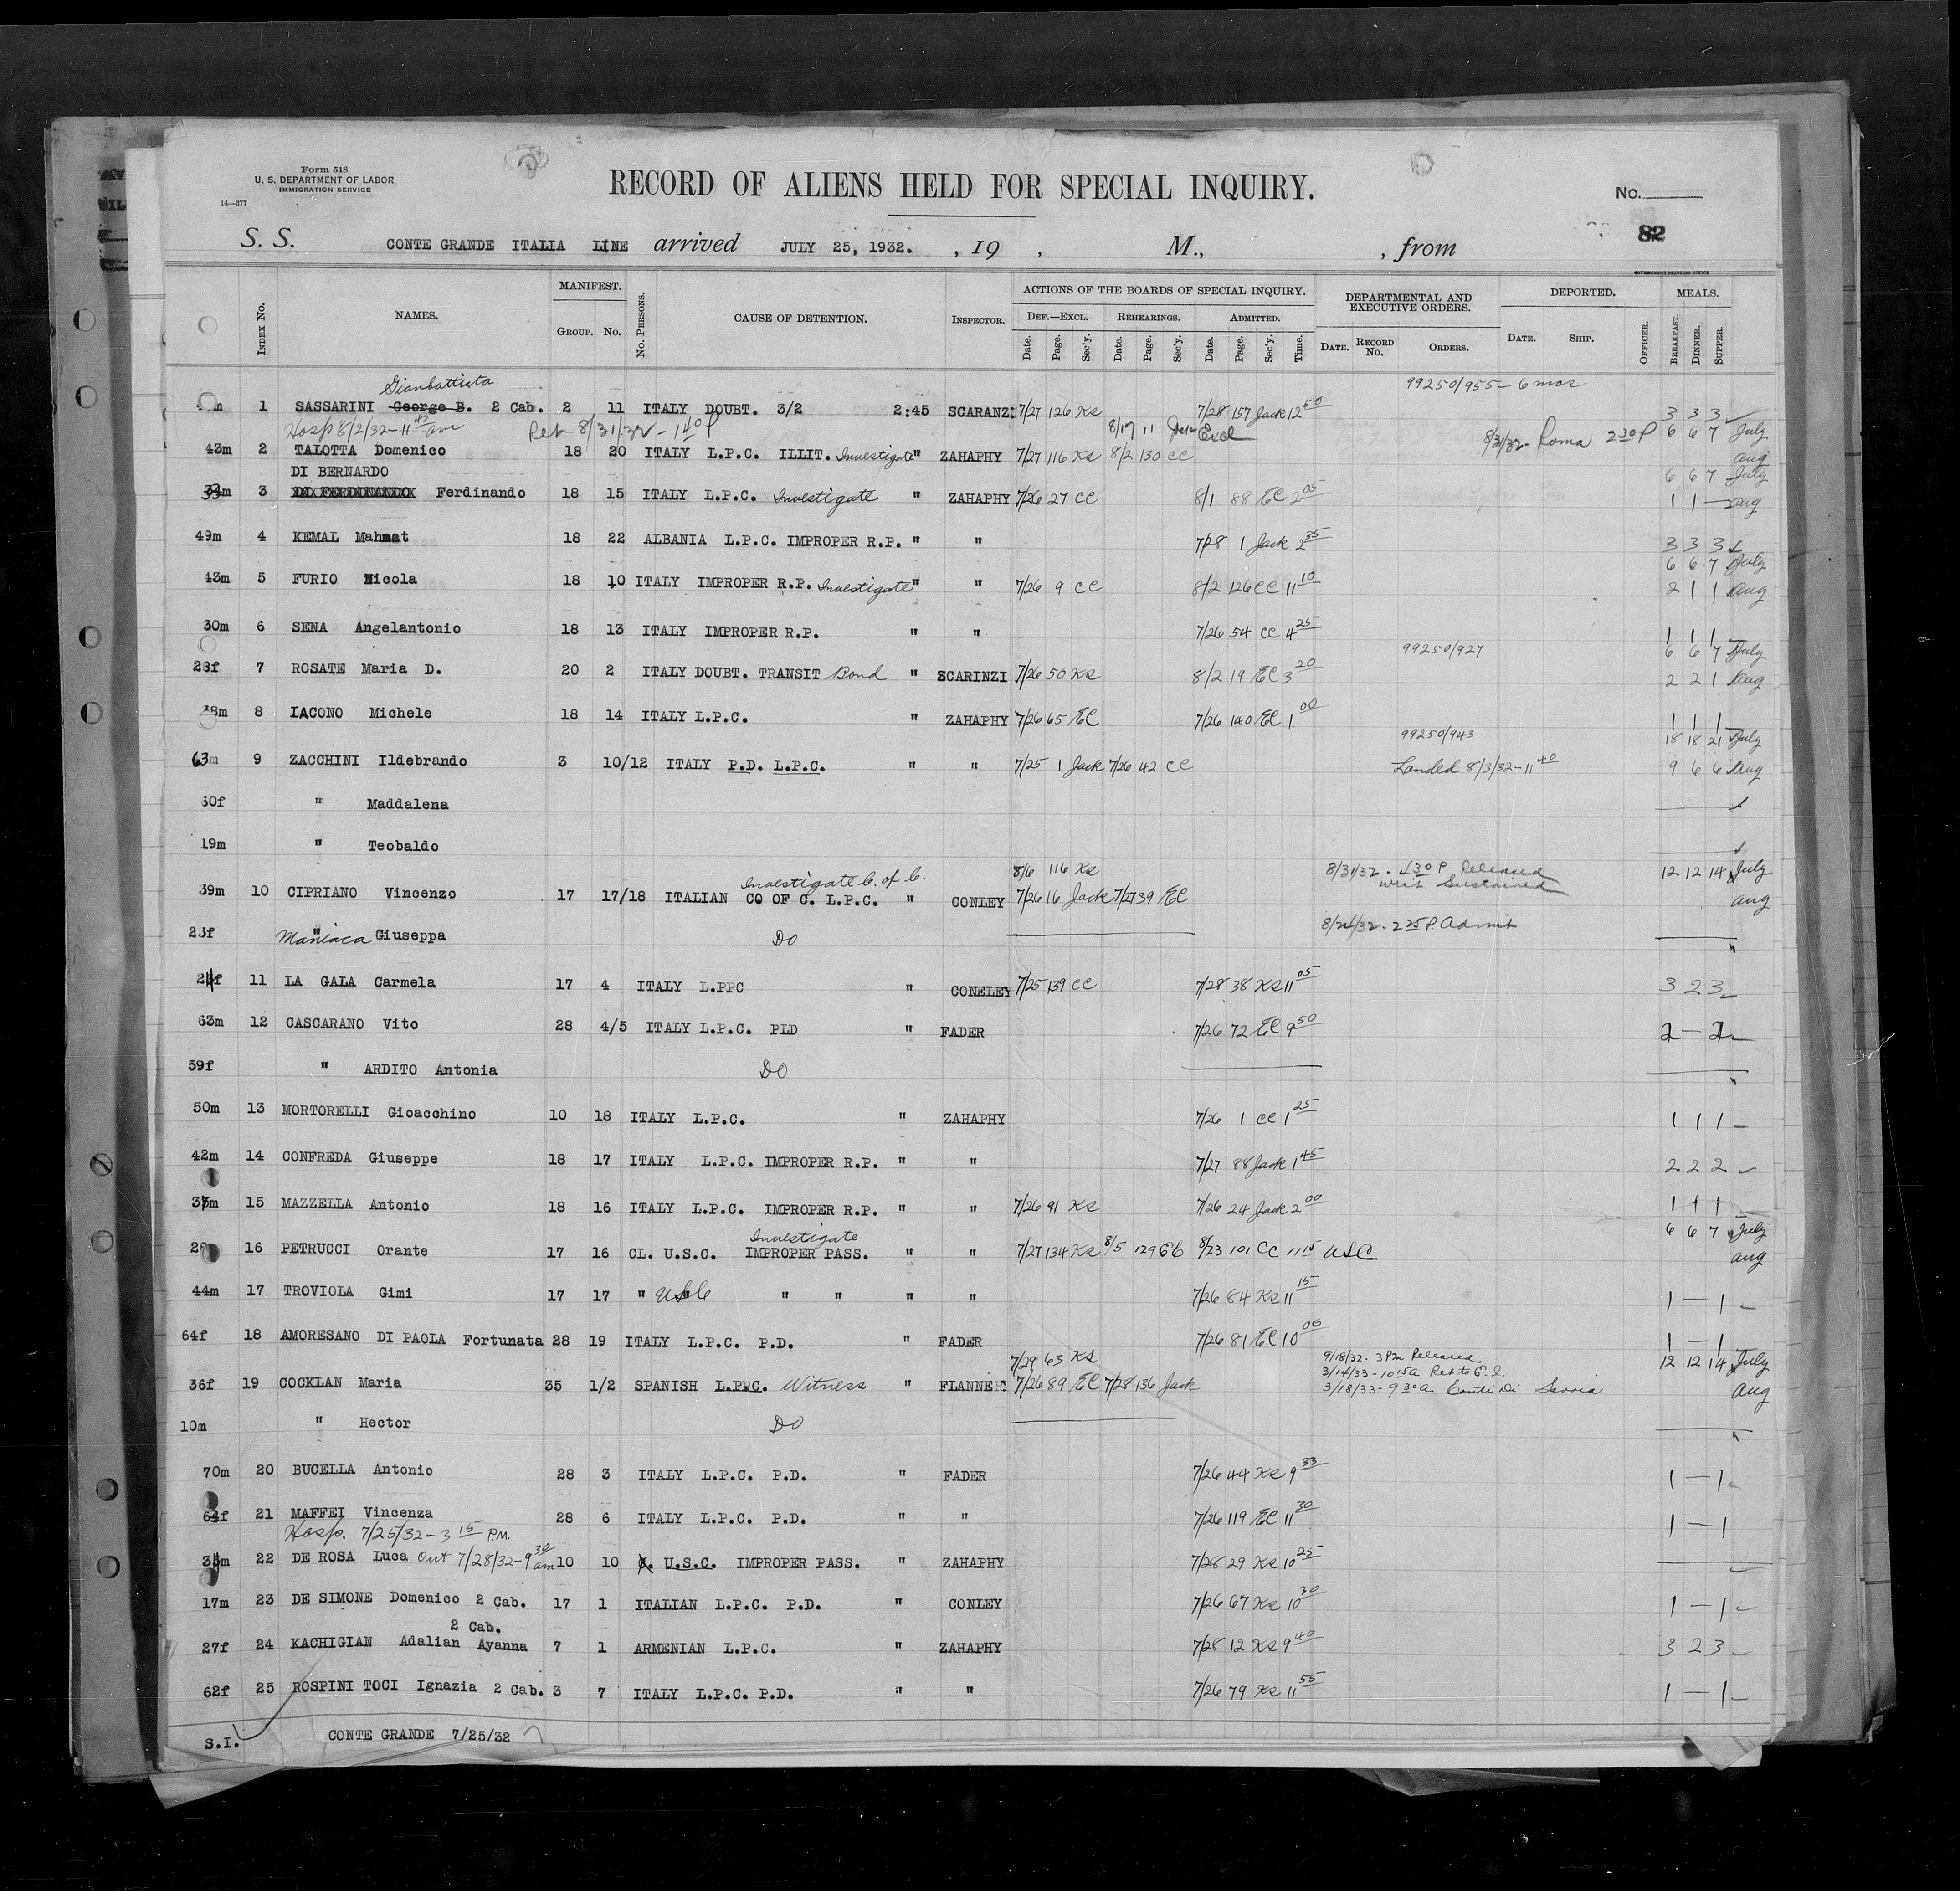 Form 518
U. S. DEPARTMENT OF LABOR
IMMIGRATION SERVICE
14—377
RECORD OF ALIENS HELD FOR SPECIAL INQUIRY.
No.
82
S. S. CONTE GRANDE ITALIA LINE arrived JULY 25, 1932. , 19 , M., , from
GOVERNMENT PRINTING OFFICE
INDEX No. NAMES. MANIFEST. GROUP. No. No. PERSONS. CAUSE OF DETENTION. INSPECTOR. ACTIONS OF THE BOARDS OF SPECIAL INQUIRY. DEPARTMENTAL AND EXECUTIVE ORDERS. DEPORTED. MEALS.
DEF.—EXCL. REHEARINGS. ADMITTED.
Date. Page. Sec'y. Date. Page. Sec'y. Date. Page. Sec'y. Time. DATE. RECORD No. ORDERS. DATE. SHIP. OFFICER. BREAKFAST. DINNER. SUPPER.
Gianbattista 99250/955 - 6 mos
1 SASSARINI George B. 2 Cab. 2 11 ITALY DOUBT. 3/2 2:45 SCARANZI 7/27 126 KS 7/28 157 Jack 12 50 3 3 3
Hosp 8/2/32 - 11 am Ret 8/31/32 - 1 40 P 8/17 11 Excl 8/31/32 - Roma 2 30 P 6 6 7 July
43m 2 TALOTTA Domenico 18 20 ITALY L.P.C. ILLIT. Investigate " ZAHAPHY 7/27 116 KS 8/2 130 CC aug
DI BERNARDO 6 6 7 July
3 DI FERDINANDO Ferdinando 18 15 ITALY L.P.C. Investigate " ZAHAPHY 7/26 27 CC 8/1 88 EC 2 05 1 1 — aug
49m 4 KEMAL Mahmat 18 22 ALBANIA L.P.C. IMPROPER R.P. " " 7/28 1 Jack 2 35 3 3 3
6 6 7 July
43m 5 FURIO Nicola 18 10 ITALY IMPROPER R.P. Investigate " " 7/26 9 CC 8/2 126 CC 11 10 2 1 1 aug
30m 6 SENA Angelantonio 18 13 ITALY IMPROPER R.P. " " 7/26 54 CC 4 25 1 1 1
99250/927 6 6 7 July
28f 7 ROSATE Maria D. 20 2 ITALY DOUBT. TRANSIT Bond " SCARINZI 7/26 50 KS 8/2 19 EC 3 20 2 2 1 aug
18m 8 IACONO Michele 18 14 ITALY L.P.C. " ZAHAPHY 7/26 65 EC 7/26 140 EC 1 00 1 1 1
99250/943 18 18 21 July
63m 9 ZACCHINI Ildebrando 3 10/12 ITALY P.D. L.P.C. " " 7/25 1 Jack 7/26 42 CC Landed 8/3/32 - 11 40 9 6 6 aug
60f " Maddalena
19m " Teobaldo
8/6 116 KS 8/31/32 - 4 30 P Released 12 12 14 July
Investigate C. of C. writ Sustained
39m 10 CIPRIANO Vincenzo 17 17/18 ITALIAN CO OF C. L.P.C. " CONLEY 7/26 16 Jack 7/27 39 EC aug
23f Maniaca " Giuseppa DO 8/24/32 - 2 25 P. Admit
11 LA GALA Carmela 17 4 ITALY L.PPC " CONELEY 7/25 139 CC 7/28 38 KS 11 05 3 2 3
63m 12 CASCARANO Vito 28 4/5 ITALY L.P.C. PLD " FADER 7/26 72 EC 9 50 2 — 2
59f " ARDITO Antonia DO
50m 13 MORTORELLI Gioacchino 10 18 ITALY L.P.C. " ZAHAPHY 7/26 1 CC 1 25 1 1 1
42m 14 CONFREDA Giuseppe 18 17 ITALY L.P.C. IMPROPER R.P. " " 7/27 88 Jack 1 45 2 2 2
15 MAZZELLA Antonio 18 16 ITALY L.P.C. IMPROPER R.P. " " 7/26 91 KS 7/26 24 Jack 2 00 1 1 1
Investigate 6 6 7 July
16 PETRUCCI Orante 17 16 CL. U.S.C. IMPROPER PASS. " " 7/27 134 KS 8/5 129 8/23 101 CC 11 15 USC aug
44m 17 TROVIOLA Gimi 17 17 " USC " " " " 7/26 84 KS 11 15 1 — 1
64f 18 AMORESANO DI PAOLA Fortunata 28 19 ITALY L.P.C. P.D. " FADER 7/26 81 EC 10 00 1 — 1
7/29 63 KS 9/18/32 - 3 Pm Released 12 12 14 July
3/14/33 - 10 15 a Ret to E. I.
36f 19 COCKLAN Maria 35 1/2 SPANISH L.PPC. Witness " FLANNER 7/26 89 EC 7/28 136 Jack 3/18/33 - 9 30 a Conti Di Savoia Aug
10m " Hector DO
70m 20 BUCELLA Antonio 28 3 ITALY L.P.C. P.D. " FADER 7/26 44 KS 9 33 1 — 1
64f 21 MAFFEI Vincenza 28 6 ITALY L.P.C. P.D. " " 7/26 119 EC 11 30 1 — 1
Hosp. 7/25/32 - 3 15 P.M.
22 DE ROSA Luca Out 7/28/32 - 9 30 am 10 10 U.S.C. IMPROPER PASS. " ZAHAPHY 7/28 29 KS 10 25
17m 23 DE SIMONE Domenico 2 Cab. 17 1 ITALIAN L.P.C. P.D. " CONLEY 7/26 67 KS 10 30 1 — 1
2 Cab.
27f 24 KACHIGIAN Adalian Ayanna 7 1 ARMENIAN L.P.C. " ZAHAPHY 7/28 12 KS 9 40 3 2 3
62f 25 ROSPINI TOCI Ignazia 2 Cab. 3 7 ITALY L.P.C. P.D. " " 7/26 79 KS 11 55 1 — 1
S.I. CONTE GRANDE 7/25/32